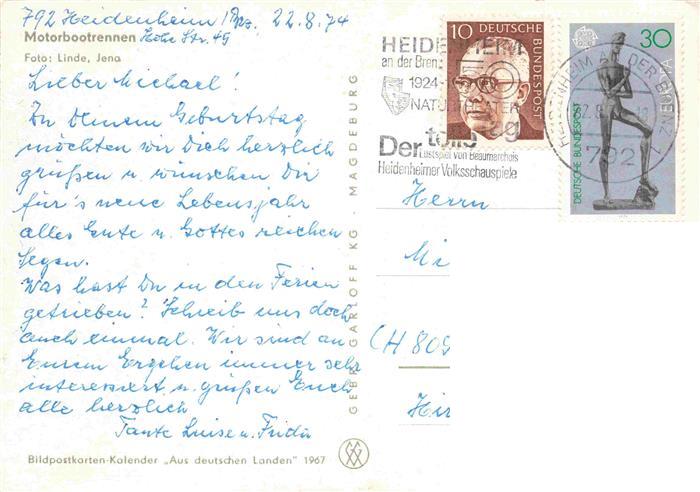 792 Heidenheim / Brz., 22.8.74
Motorbootrennen Hohe Str. 49
Foto: Linde, Jena
Lieber Michael!
Zu Deinem Geburtstag
möchten wir Dich herzlich
grüßen u. wünschen Dir
für's neue Lebensjahr
alles Gute u. Gottes reichen
Segen.
Was hast Du in den Ferien
getrieben? Schreib uns doch
auch einmal. Wir sind an
Eurem Ergehen immer sehr
interessiert u. grüßen Euch
alle herzlich
Tante Luise u. Frida
Bildpostkarten-Kalender „Aus deutschen Landen" 1967
GEBR. GARLOFF KG · MAGDEBURG
HEIDENHEIM
an der Brenz
1924-
NATURTHEATER
Der tolle Tag
Lustspiel von Beaumarchais
Heidenheimer Volksschauspiele
10 DEUTSCHE BUNDESPOST
30
EUROPA
CEPT
DEUTSCHE BUNDESPOST
HEIDENHEIM AN DER BRENZ
792
Herrn
Mi
CH 809
Hir